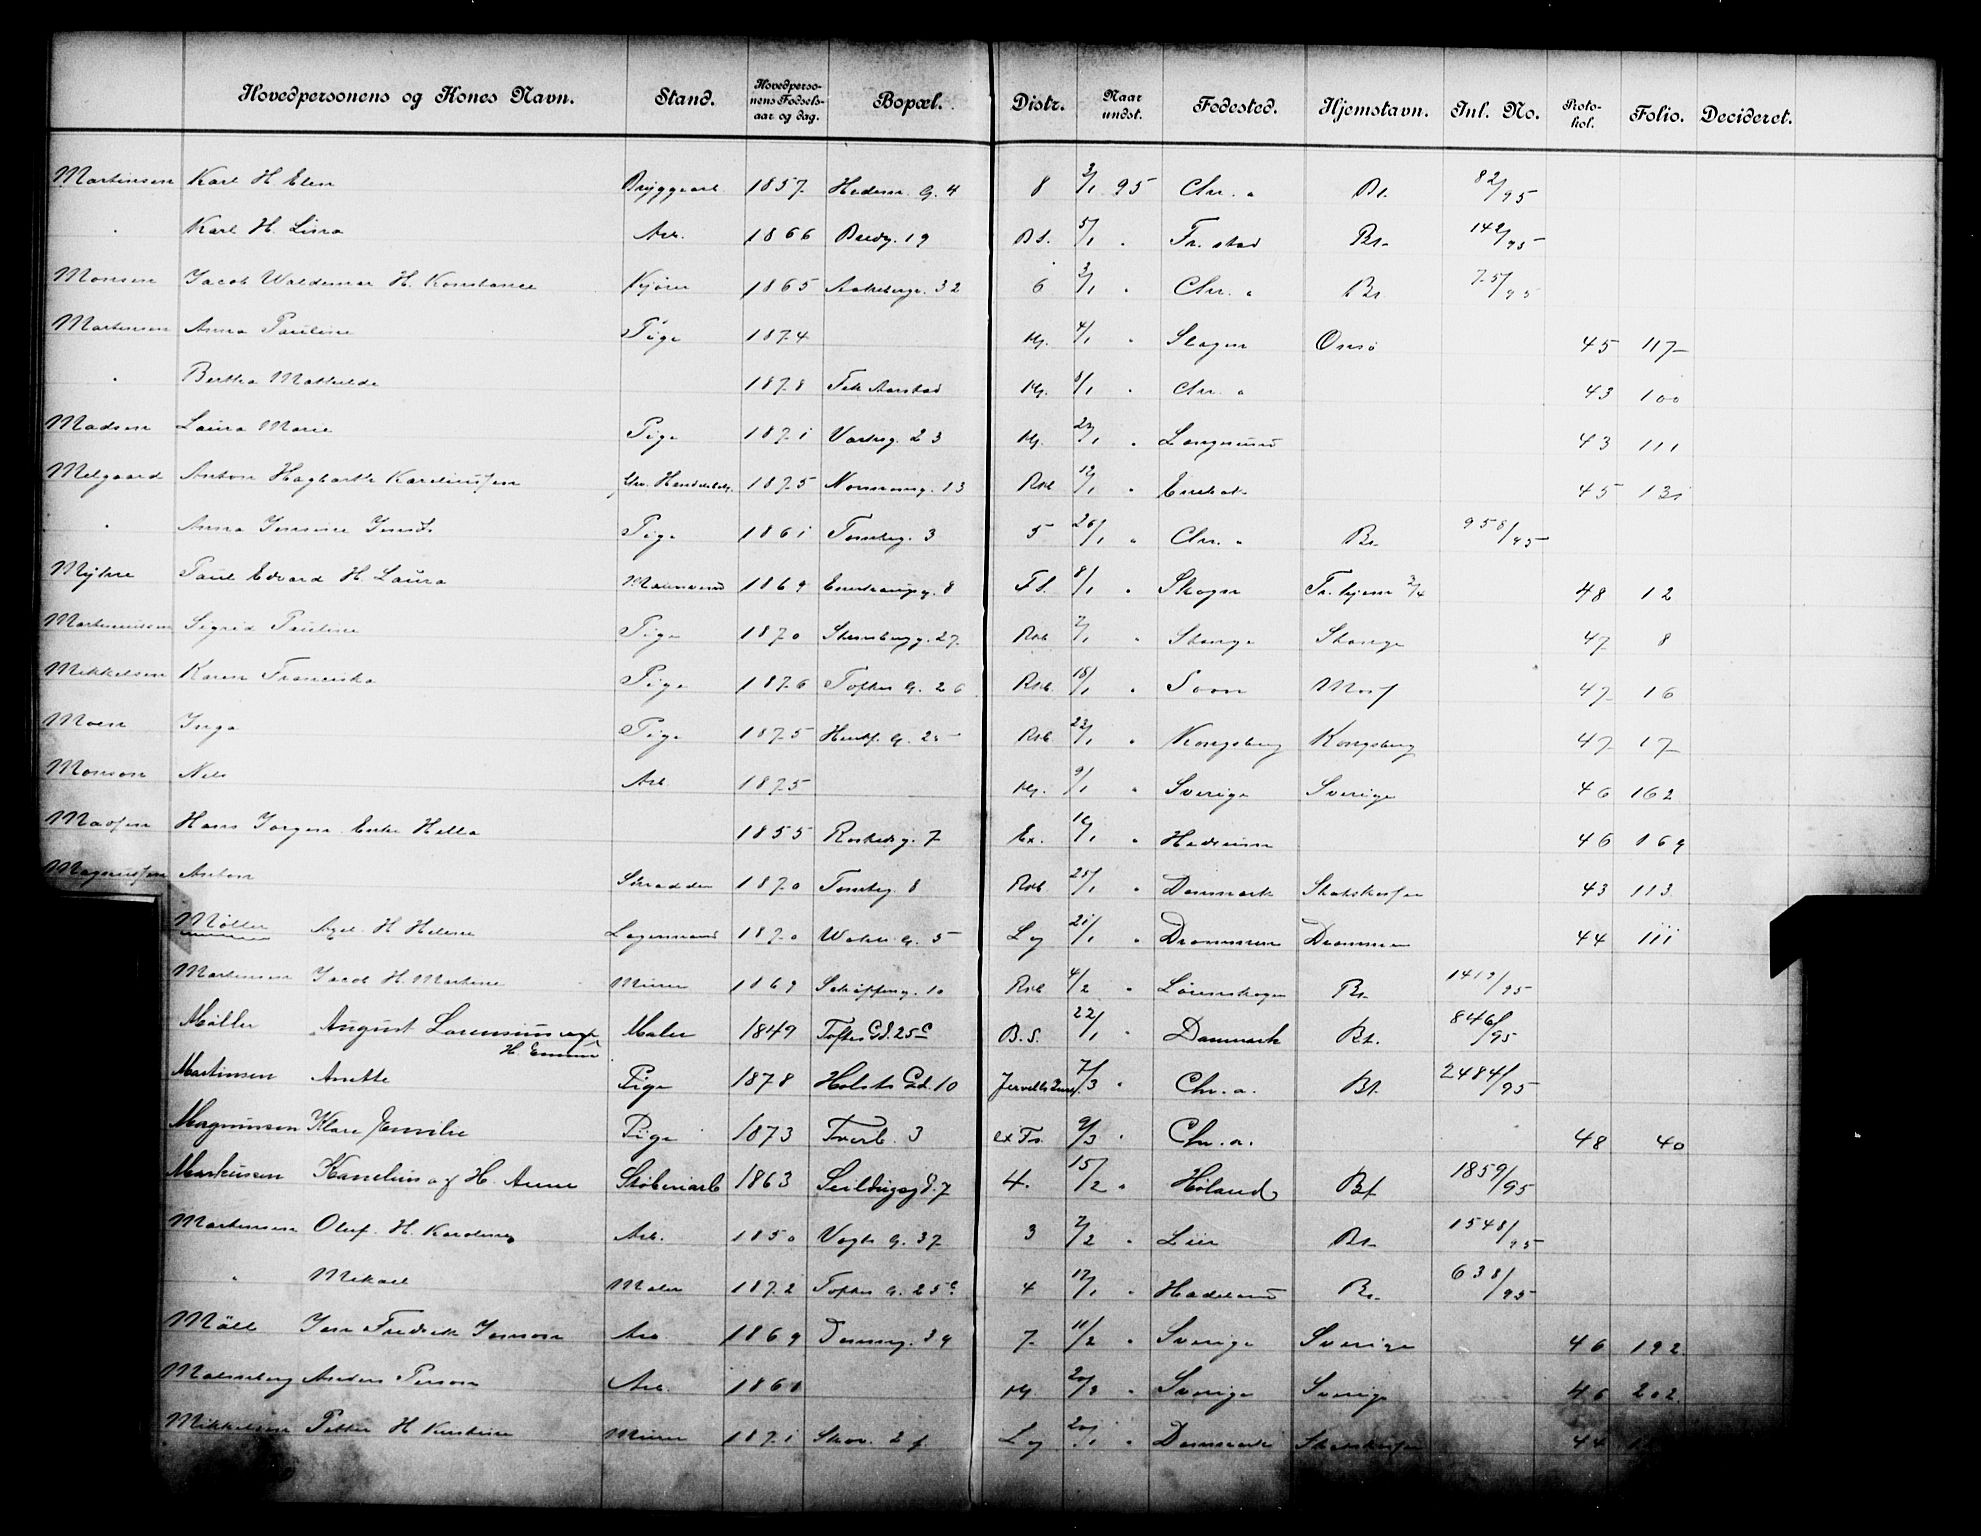 Hovedpersonens og Kones Navn. Stand. Hovedpersonens Fødselsaar og dag. Bopæl. Distr. Naar undst. Fødested. Hjemstavn. Inl. No. Protokol. Folio. Decideret.
Martinsen Karl H Elen Bryggearb 1857 Hedem. G. 4 8 3/1 95 Chr. a Bt. 82/95
" Karl H. Lina Arb. 1866 Bredg. 19 Bt. 5/1 " Fr. stad Bt. 142/95
Monsen Jacob Waldemar H. Konstance Kjører 1865 Aakebergv. 32 6 3/1 " Chr. a Bt 75/95
Martinsen Anna Pauline Pige 1874 4/1 " Onsø 45 117
" Bertha Mathilde 1878 8/1 " Chr. a 43 100
Madsen Laura Marie Pige 1871 23 /1 " Langesund 43 111
Melgaard Anton Hagbarth Kareliussen 1875 13 Rsb 12/1 " Enebak 45 131
" Anna Pige 1861 Tomteg. 3 5 26/1 " Chr. a Bt. 958/95
Myhre Paul Edvard H. Laura 1869 8 8/1 " Skogn 48 12
Martinussen Sigrid Pauline Pige 1870 Steensbergg. 27. Rsb 7/1 " Stange Stange 47 8
Mikkelsen Karen Franciska Pige 1876 Toftes G. 26 Rsb. 18/1 " Soon Moss 47 16
Moen Inga Pige 1875 Rsb. 23/1 " Kongsberg Kongsberg 47 17
Monson Nils Arb. 1875 9/1 " Sverige Sverige 46 162
Madsen Hans Jørgen Enke Hella 1855 7 Ex. /1 " Hedrum 46 169
Magnussen Anton Skrædder 1870 Tomteg. 8 Rsb 25/1 " Danmark 43 113
Møller Axel H Helene Lagermand 1870 G. 5 Lg 21/1 " Drammen Drammen 44 111
Martinsen Jacob H. Martine Murer 1869 10 Rsb 4/2 " Lørenskogen Bt. 1419/95
Møller August Lorensius og
H Emma Maler 1849 Toftes Gd. 25c B.S. 22/1 Danmark Bt. 846/95
Martinsen Anette Pige 1878 Holsts Gd. 10 7/3 " Chr. a. Bt. 2484/95
Magnussen Klara Emilie Pige 1873 Tverb. 3 9/3 " Chr. a. 48 40
Markussen Kornelius og H. Anne Støberiarb 1863 Seildugsgd. 7 4. 15/2 " Høland Bt. 1859/95
Martinsen Oluf. H. Karoline Arb. 1850 Vogts G. 37 3 7/2 " Lier Bt. 1548/95
" Mikael Maler 1872 Toftes G. 25c. 4 17/1 " Hadeland Bt. 638/95
Möll Jon Fredrik Jonson Arb 1869 39 7. 11/2 " Sverige Sverige 46 192.
Malmberg Anders Person Arb. 1861 20/2 " Sverige Sverige 46 202.
Mikkelsen Petter H Kirstine Murer 1871 Lg 20/1 " Danmark 44